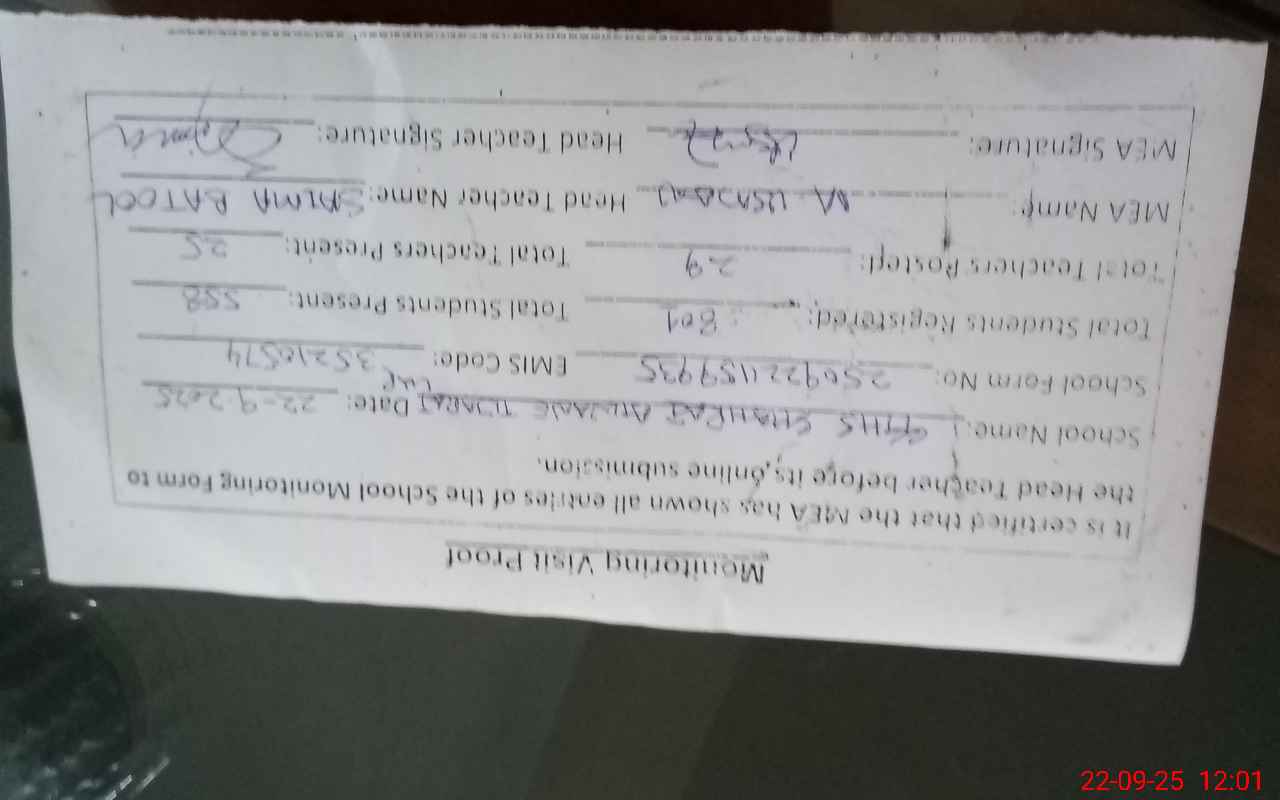 Monitoring Visit Proof
It is certified that the MEA has shown all entries of the School Monitoring Form to
the Head Teacher before its online submission.
School Name: GGHS Date: 22-9-2025
School Form No: 2509221159935 EMIS Code: 35210574
Total Students Registered: 801 Total Students Present: 558
Total Teachers Posted: 29 Total Teachers Present: 25
MEA Name: Head Teacher Name: SALMA BATOOL
MEA Signature: Head Teacher Signature: Salma
22-09-25 12:01